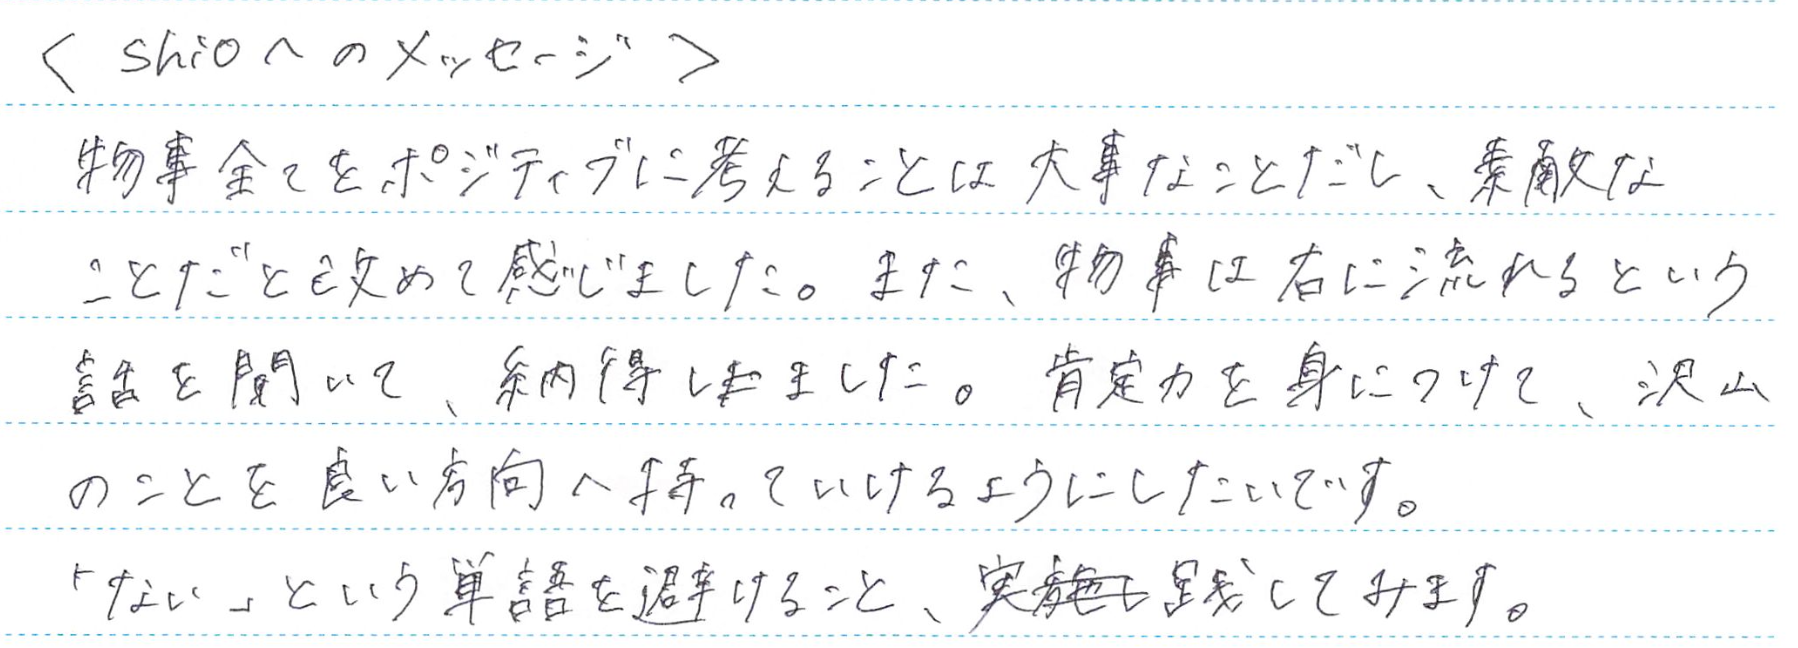 < shioへのメッセージ >
物事全てをポジティブに考えることは大事なことだし、素敵な
ことだと改めて感じました。また、物事は右に流れるという
話を聞いて、納得しました。肯定力を身につけて、沢山
のことを良い方向へ持っていけるようにしたいです。
「ない」という単語を避けること、実践してみます。